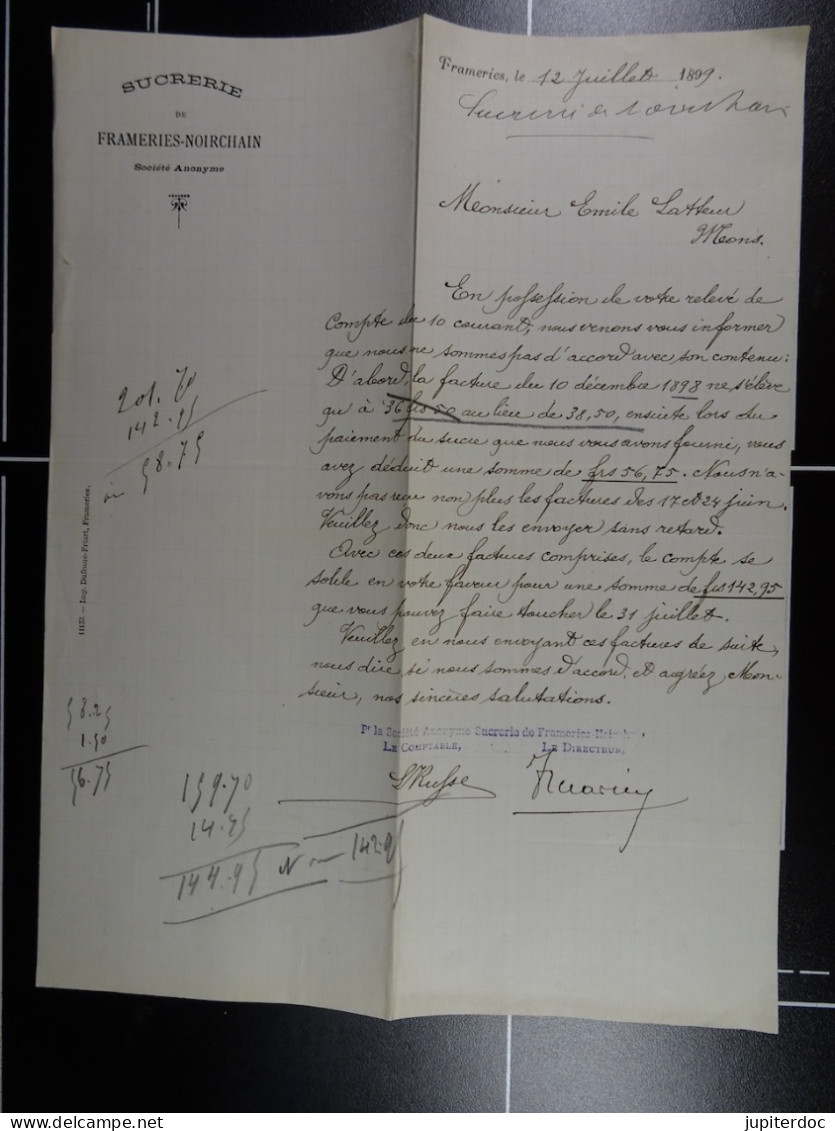 SUCRERIE
DE
FRAMERIES-NOIRCHAIN
Société Anonyme
Frameries, le 12 Juillet 1899.
Sucrerie de Noirchain
Monsieur Emile Latteur
Mons.
En possession de votre relevé de
compte du 10 courant, nous venons vous informer
que nous ne sommes pas d'accord avec son contenu:
D'abord, la facture du 10 décembre 1898 ne s'élève
qu'à 36 frs 50 au lieu de 38,50, ensuite lors du
paiement du sucre que nous vous avons fourni, vous
avez déduit une somme de frs 56,75. Nous n'a-
vons pas reçu non plus les factures des 17 et 24 juin.
Veuillez donc nous les envoyer sans retard.
Avec ces deux factures comprises, le compte se
solde en votre faveur pour une somme de frs 142,95
que vous pouvez faire toucher le 31 juillet.
Veuillez en nous envoyant ces factures de suite,
nous dire si nous sommes d'accord. Et agréez, Mon-
sieur, nos sincères salutations.
Pr la Société Anonyme Sucrerie de Frameries-Noirchain
LE COMPTABLE, LE DIRECTEUR,
201.70
142.95
58.75
58.25
1.50
56.75
159.70
14.75
144.95 142.95
Frameries.
jupiterdoc